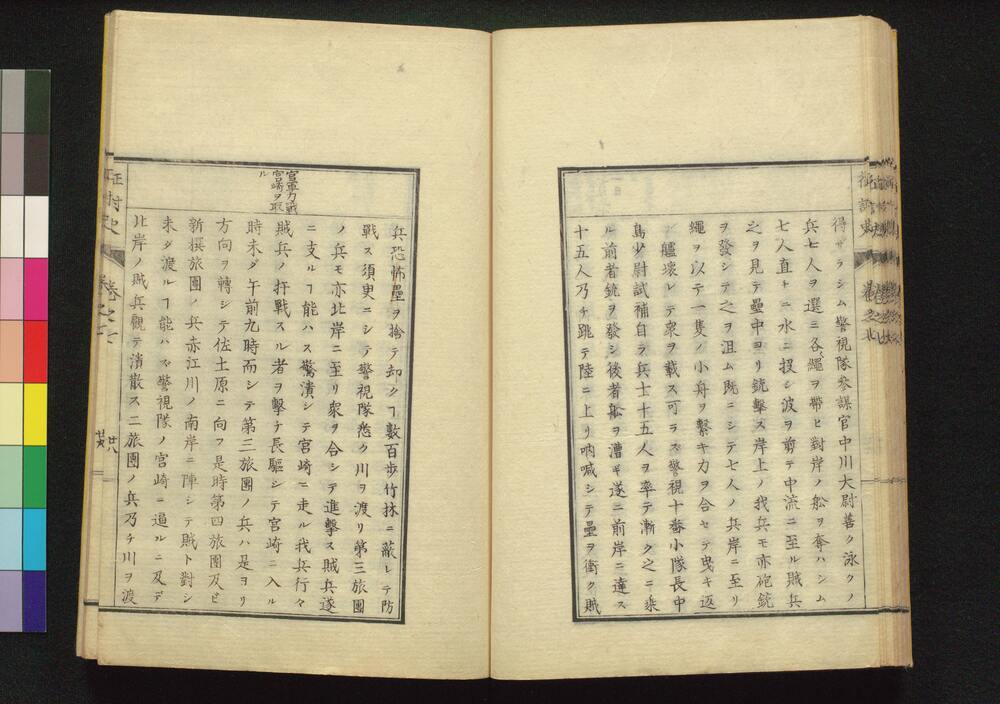 得ザラシム警視隊參謀官中川大尉善ク泳クノ
兵七人ヲ選ミ各〻繩ヲ帶ヒ對岸ノ舩ヲ奪ハシム
七人直トニ水ニ投シ波ヲ剪テ中流ニ至ル賊兵
之ヲ見テ壘中ヨリ銃擊ス岸上ノ我兵モ亦砲銃
ヲ發シテ之ヲ沮ム既ニシテ七人ノ兵岸ニ至リ
繩ヲ以テ一隻ノ小舟ヲ繫キ力ヲ合セテ曳キ返
艫壞レテ衆ヲ載ス可ラス警視十番小隊長中
島少尉試補自ラ兵士十五人ヲ率テ漸ク之ニ乘
ル前者銃ヲ發シ後者舩ヲ漕ギ遂ニ前岸ニ達ス
十五人乃チ跳テ陸ニ上リ吶喊シテ壘ヲ衝ク賊
官軍力戰
宮崎ヲ取
ル
兵恐怖壘ヲ捨テ却クヿ數百歩竹林ニ蔽レテ防
戰ス須臾ニシテ警視隊悉ク川ヲ渡リ第三旅團
ノ兵モ亦北岸ニ至リ衆ヲ合シテ進擊ス賊兵遂
ニ支ルヿ能ハス驚潰シテ宮崎ニ走ル我兵行々
賊兵ノ扞戰スル者ヲ擊チ長驅シテ宮崎ニ入ル
時未ダ午前九時而シテ第三旅團ノ兵ハ是ヨリ
方向ヲ轉シテ佐土原ニ向フ是時第四旅團及ビ
新撰旅團ノ兵赤江川ノ南岸ニ陣シテ賊ト對シ
未ダ渡ルヿ能ハス警視隊ノ宮崎ニ逼ルニ及デ
北岸ノ賊兵觀テ潰散ス二旅團ノ兵乃チ川ヲ渡
征討史
卷之
廿八